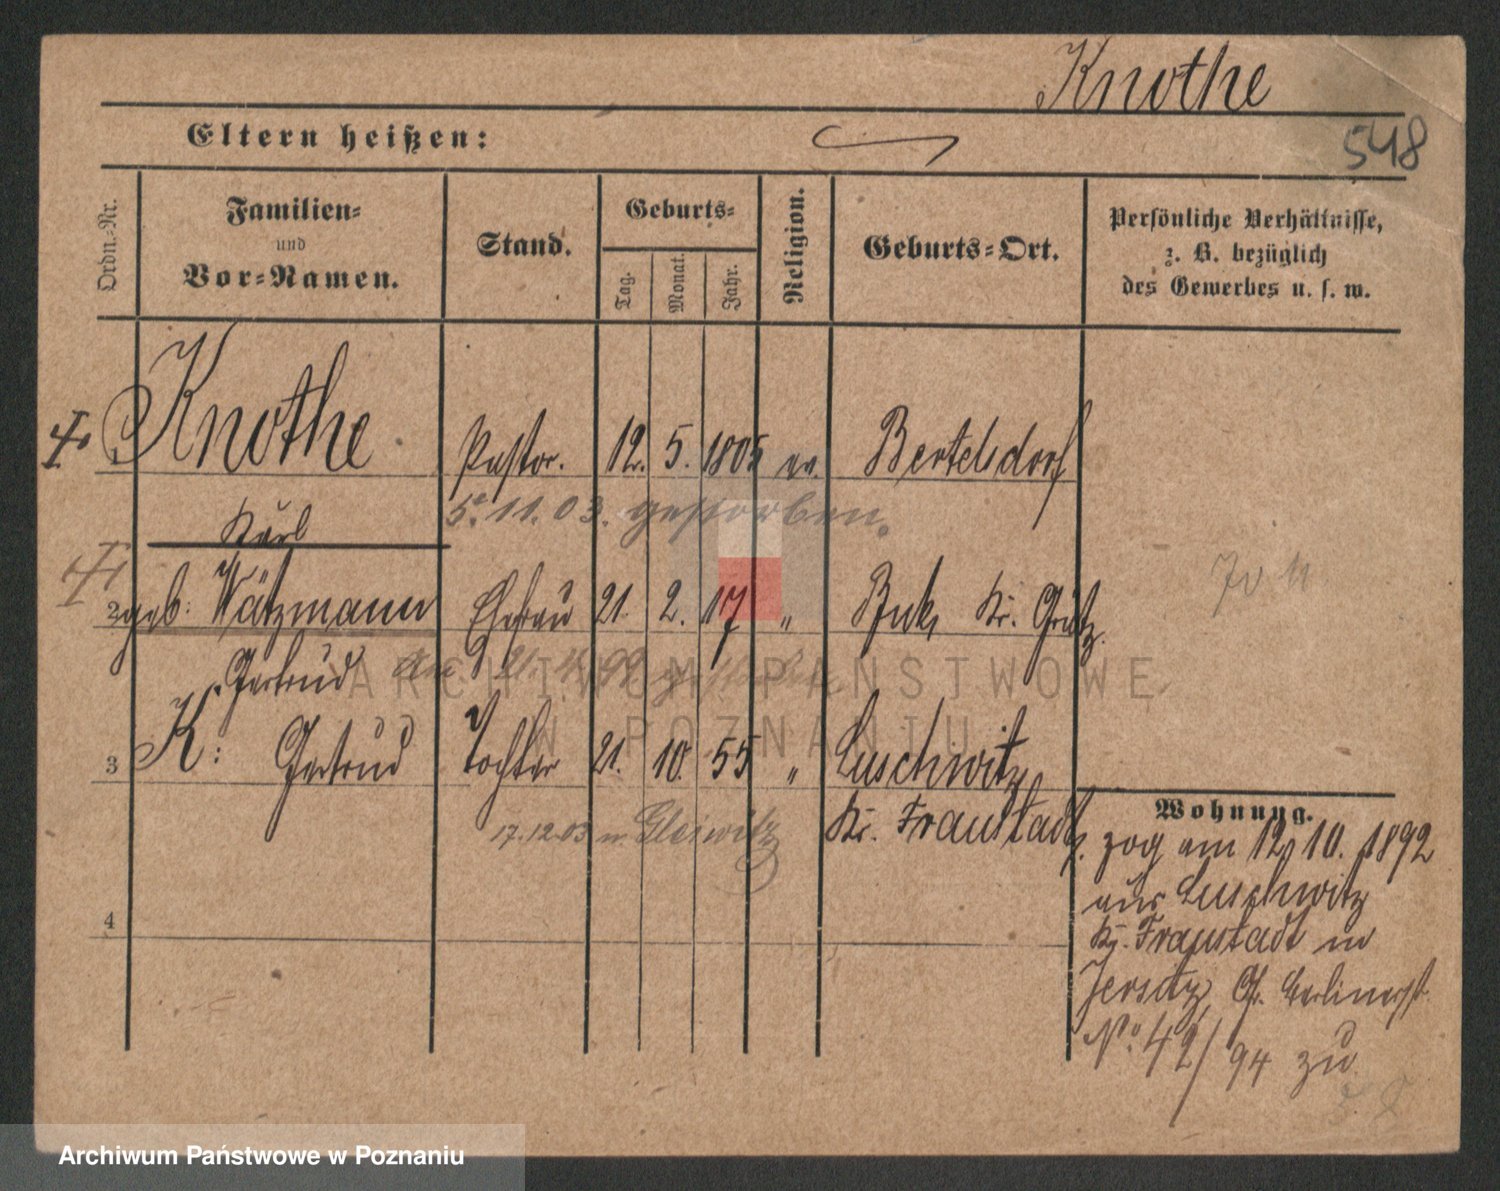 Knothe
Eltern heißen:
548
Ordn.-Nr.
Familien-
und
Vor-Namen.
Stand.
Geburts-
Tag.
Monat.
Jahr.
Religion.
Geburts-Ort.
Persönliche Verhältnisse,
z. B. bezüglich
des Gewerbes u. s. w.
Knothe Pastor. 12. 5. 1805 ev. Bertelsdorf
Karl
5. 11. 03. gestorben.
2 geb: Wätzmann Ehefrau 21. 2. 17 " Buk, Kr. Grätz.
Gertrud
ARCHIWUM PAŃSTWOWE
W POZNANIU
3 K: Gertrud Tochter 21. 10. 55 " Luschwitz
Kr. Fraustadt
17.12.03 n. Gleiwitz
4
Wohnung.
zog am 12. 10. 1892
aus Luschwitz
Kr. Fraustadt in
Jersitz, Gr. Berlinerst.
No. 42/94 zu
Archiwum Państwowe w Poznaniu